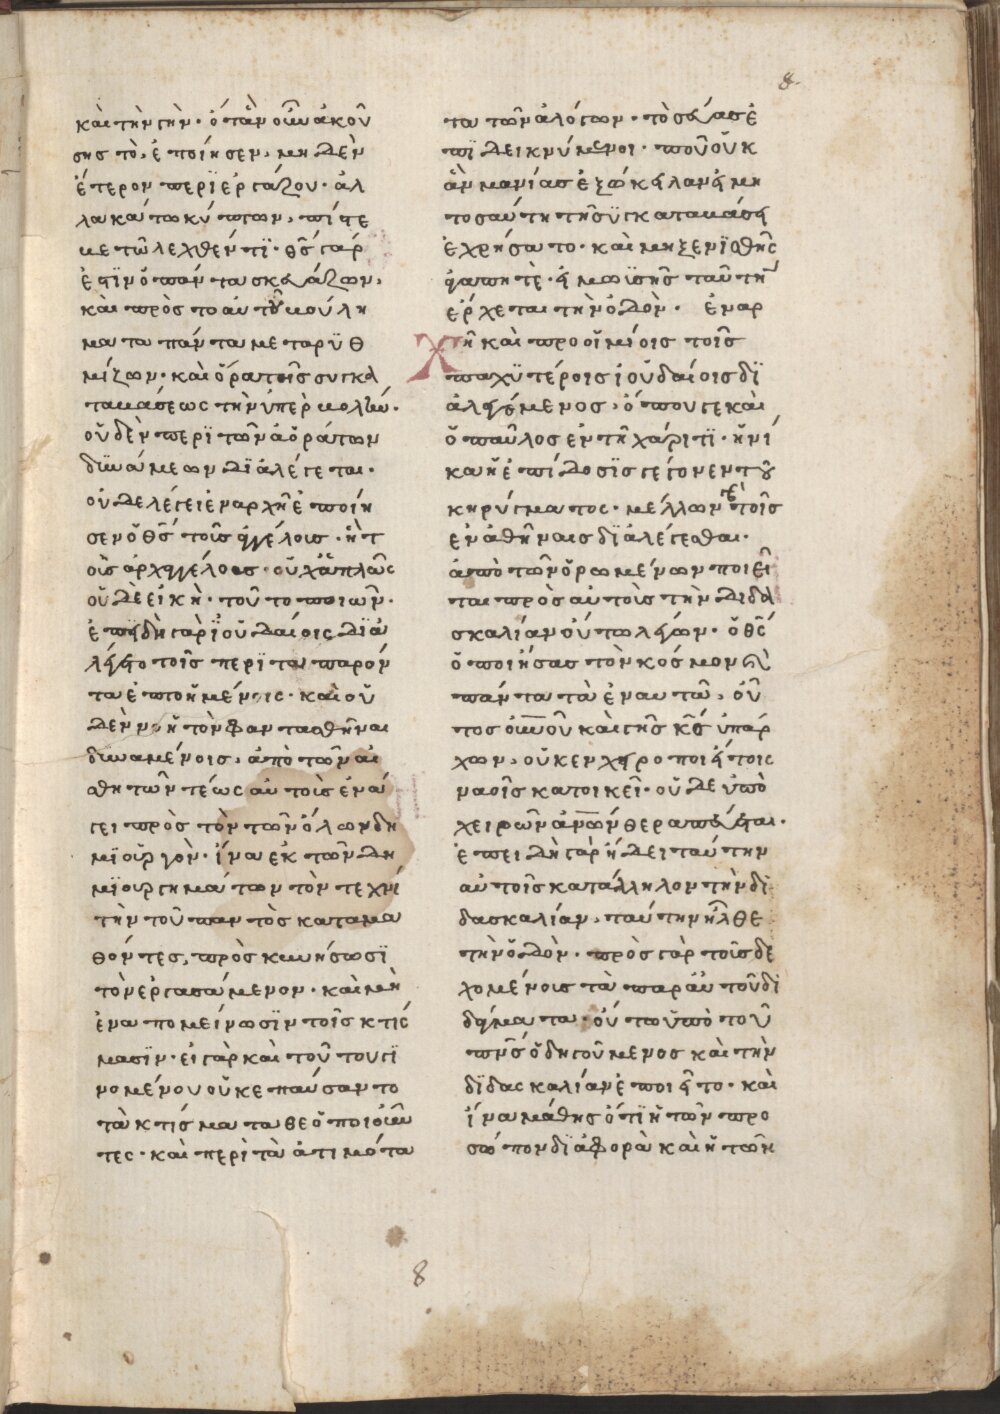 8.
καὶ τὴν γὴν · ὁ τὰν οὖν ἀκού
σης τὸ, ἐποίησεν, μηδὲν
ἕτερον περϊεργάζου · ἀλ
λα κάτω κύπτων, πίστε
με τῶ λεχθέντϊ · θς γάρ
ἐστϊν ὁ πάντα σκευάζων,
καὶ πρὸς τὸ αὐτοῦ βούλη
μα τὰ πάντα μεταρϋθ
μίζων · καὶ ὅρα τοῖς συγκα
ταβάσεως τὴν ὑπερβολήν ·
οὐδὲν περϊ τῶν ἀοράτων
δυνάμεων δϊαλέγεται ·
οὐδε λέγει ἐν ἀρχῆ ἐποίη
σεν ὁ θς τοῖς ἀγγέλοις · ἢ τ
οῖς ἀρχαγγέλοις · οὐχ ἁπλῶς
οὐδὲ εἰκὴ · τοῦτο ποιῶν ·
ἐπειδὴ γὰρ ϊουδαίοις δϊε
λέγετο τοῖς περϊ τὰ παρόν
τα ἐπτοημένοις · καὶ οὐ
δὲν νοητὸν φαντασθῆναι
δυναμένοις, ἀπὸ τῶν αἰ
σθητῶν τέως αὐτοὺς ἐνά
γει πρὸς τὸν τῶν ὅλων δη
μϊουργὸν · ἵνα ἐκ τῶν δη
μϊουργημάτων τὸν τεχνί
την τοῦ παντὸς καταμα
θόντες, προσκυνήσωσϊ
τὸν ἐργασάμενον · καὶ μὴ
ἐναπομείνωσϊν τοῖς κτίσ
μασϊν · εἰ γὰρ καὶ τούτου γϊ
νομένου οὐκ ἐπαύσαντο
τὰ κτίσματα θεοποιοῦν
τες · καὶ περϊ τὰ ἀτιμότα
τα τῶν ἀλόγων · τὸ σέβας ἐ
πϊδεικνύμενοι · ποῦ οὐκ
ἂν μανίας ἐξώκειλαν εἰ μὴ
τοσαύτη τῆ συγκαταβάσει
ἐχρήσατο · καὶ μὴ ξενϊσθῆς
ἀγαπητὲ · εἰ μωϋσῆς ταύτην
ἔρχεται τὴν ὁδὸν · ἐν ἀρ
χῆ καὶ προοιμίοις τοῖς
παχϋτέροις ἰουδαίοις δϊ
αλεγόμενος, ὅπου γε καὶ
ὁ παῦλος ἐν τῆ χάριτϊ · ἡνί
κα ἡ ἐπίδοσϊς γέγονεν τοῦ
κηρύγματος · μέλλων τοῖς
ἐν ἀθήναις δϊαλέγεσθαι ·
ἀπὸ τῶν ὁρωμένων ποιεῖ
ται πρὸς αὐτοὺς τὴν διδα
σκαλίαν οὕτω λέγων · ὁ θς
ὁ ποιήσας τὸν κόσμον καὶ
πάντα τὰ ἐν αυτῶ, οὗ
τος οὐνοῦ καὶ γῆς κς ὑπάρ
χων, οὐκ ἐν χειροποιήτοις
ναοῖς κατοικεῖ · οὐδὲ ὑπὸ
χειρῶν ἀνῶν θεραπεύεται ·
ἐπειδὴ γὰρ ἤδει ταύτην
αὐτοῖς κατάλληλον τὴν δι
δασκαλίαν, ταύτην ἦλθε
τὴν ὁδὸν · πρὸς γὰρ τοὺς δε
χομένους τὰ παρ' αὐτοῦ δι
δάγματα · οὕτω ὑπὸ τοῦ
πνς ὁδηγούμενος καὶ τὴν
δϊδασκαλίαν ἐποιεῖτο · καὶ
ἵνα μάθης ὅτϊ ἡ τῶν προ
σώπων δϊαφορὰ καὶ ἡ τῶν
8